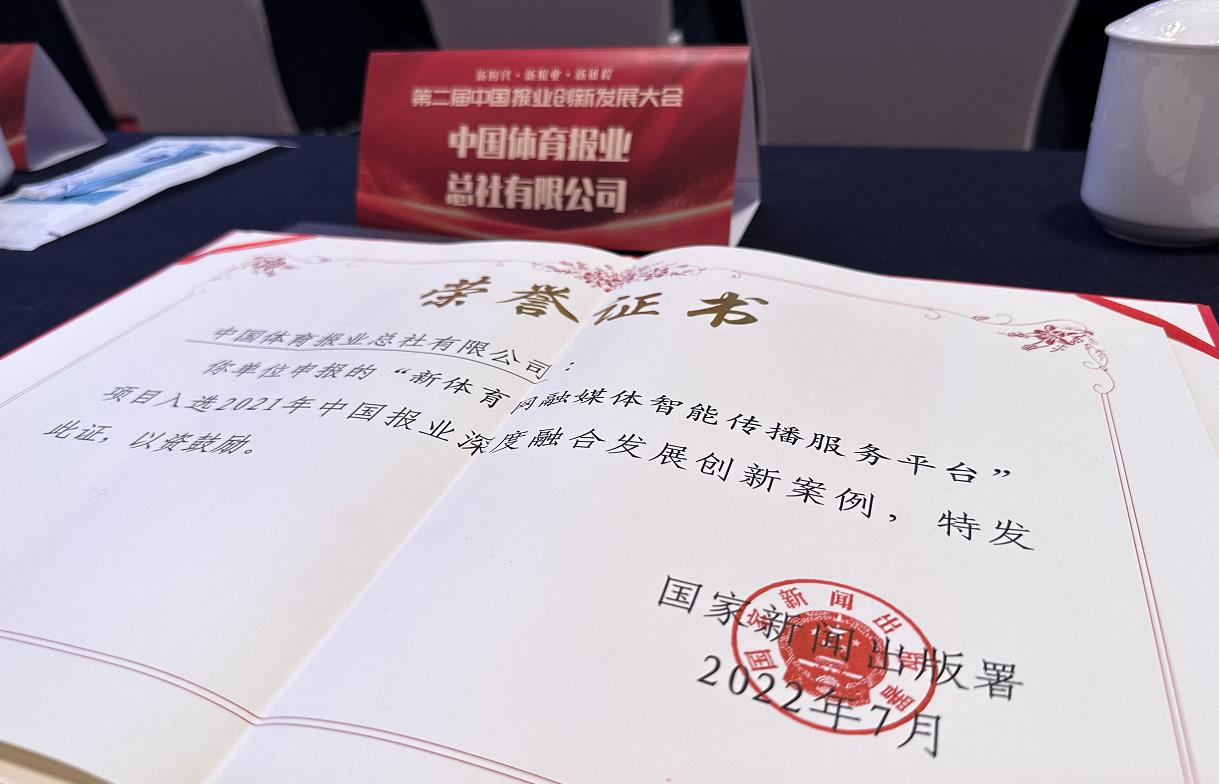 新时代·新报业·新征程
第二届中国报业创新发展大会
中国体育报业
总社有限公司
荣誉证书
中国体育报业总社有限公司：
你单位申报的“新体育网融媒体智能传播服务平台”
项目入选2021年中国报业深度融合发展创新案例，特发
此证，以资鼓励。
国家新闻出版署
2022年7月
国家新闻出版署